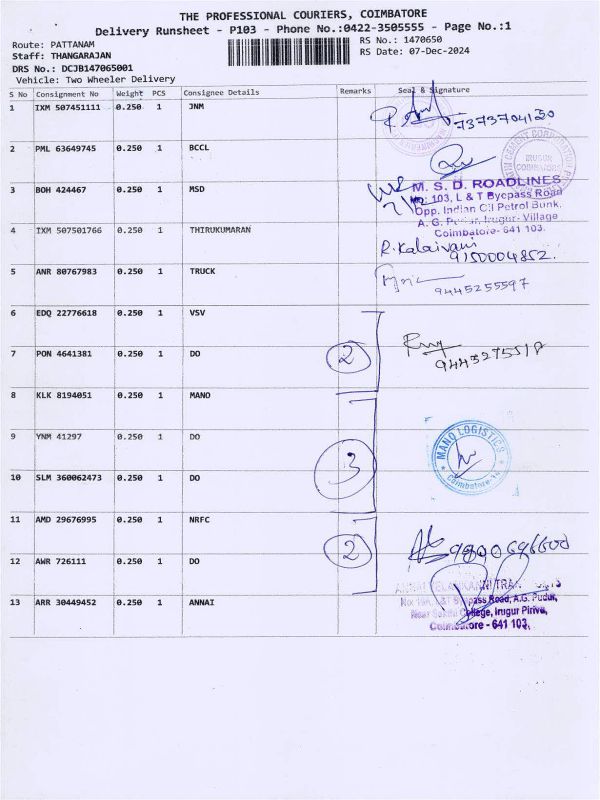 THE PROFESSIONAL COURIERS, COIMBATORE
Delivery Runsheet - P103 - Phone No.:0422-3505555 - Page No.:1
Route: PATTANAM
RS No.: 1470650
Staff: THANGARAJAN
RS Date: 07-Dec-2024
DRS No.: DCJB147065001
Vehicle: Two Wheeler Delivery
S No Consignment No Weight PCS Consignee Details Remarks Seal & Signature
1 IXM 507451111 0.250 1 JNM
7373704130
2 PML 63649745 0.250 1 BCCL
IRUGUR
COIMBATORE
3 BOH 424467 0.250 1 MSD
M. S. D. ROADLINES
No: 103, L & T Byepass Road
Opp. Indian Oil Petrol Bunk,
A. G. Pudur, Irugur- Village
Coimbatore- 641 103.
4 IXM 507501766 0.250 1 THIRUKUMARAN
R. Kalaivani
9150004852.
5 ANR 80767983 0.250 1 TRUCK
9445255597
6 EDQ 22776618 0.250 1 VSV
7 PON 4641381 0.250 1 DO
2
8 KLK 8194051 0.250 1 MANO
9 YNM 41297 0.250 1 DO
MANO LOGISTICS
Coimbatore-14
10 SLM 360062473 0.250 1 DO
3
11 AMD 29676995 0.250 1 NRFC
12 AWR 726111 0.250 1 DO
2
13 ARR 30449452 0.250 1 ANNAI
Bypass Road, A.G. Pudur,
College, Irugur Pirivu,
Coimbatore - 641 103.